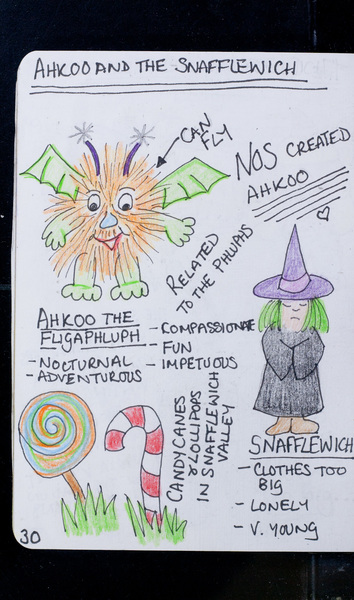 AHKOO AND THE SNAFFLEWICH
CAN
FLY
NOS CREATED
AHKOO
RELATED
TO THE PHLUPHS
AHKOO THE
FLIGAPHLUPH
- NOCTURNAL
- ADVENTUROUS
- COMPASSIONATE
- FUN
- IMPETUOUS
CANDY CANES
& LOLLIPOPS
IN SNAFFLEWICH
VALLEY
SNAFFLEWICH
- CLOTHES TOO
BIG
- LONELY
- V. YOUNG
30